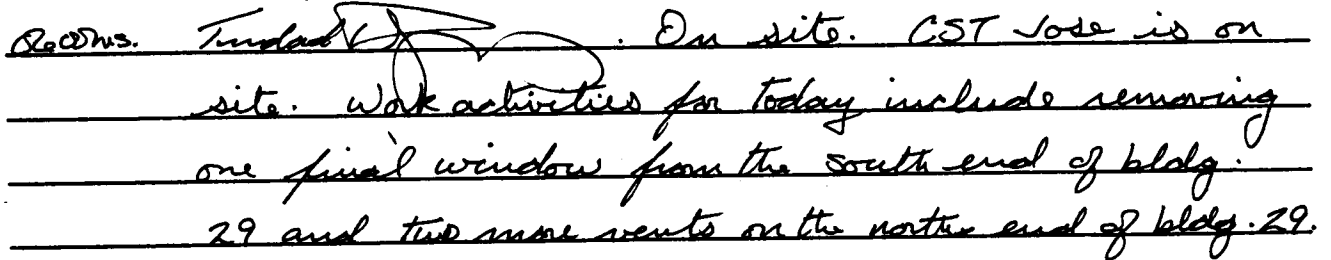 . On site. CST Jose is on
site. Work activities for today include removing
one final window from the south end of bldg.
29 and two more vents on the north end of bldg. 29.